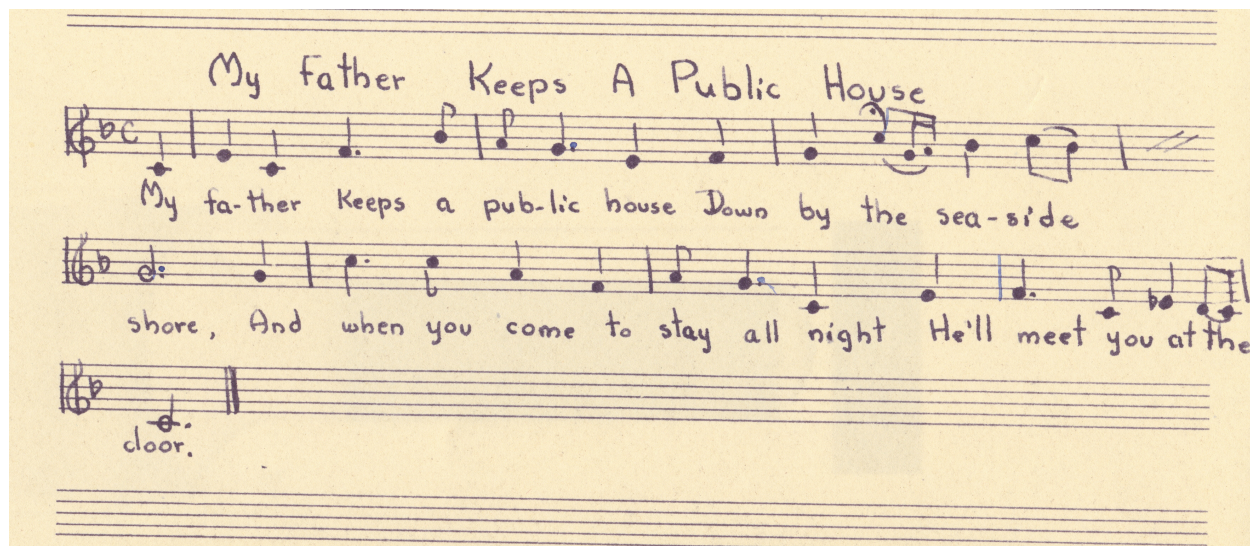 My Father Keeps A Public House
My fa-ther Keeps a pub-lic house Down by the sea-side
shore, And when you come to stay all night He'll meet you at the
door.